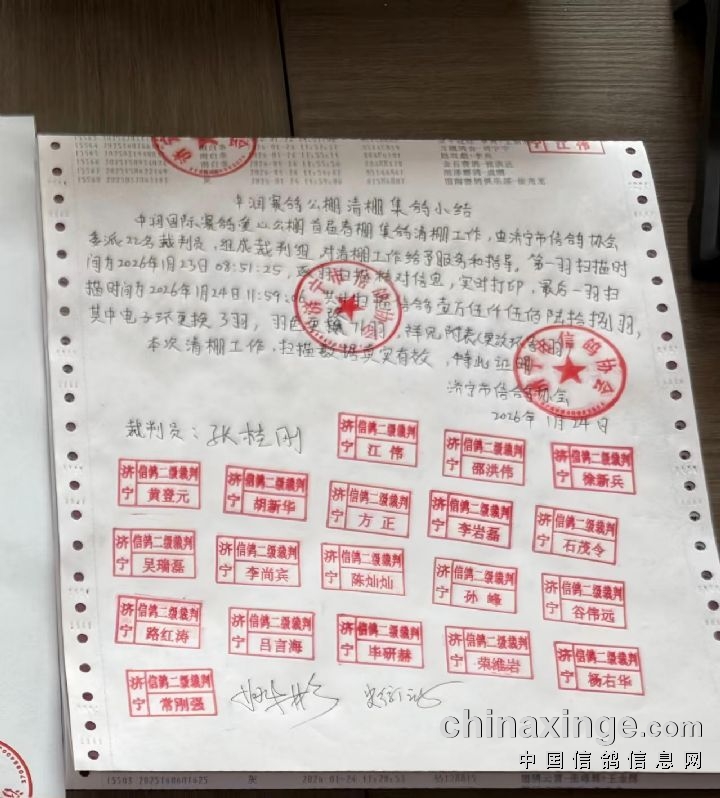 江伟
中润赛鸽公棚清棚集鸽小结
中润国际赛鸽 公棚首届春棚集鸽清棚工作，由济宁市信鸽协会
委派22名裁判员，组成裁判组，对清棚工作给予服务和指导，第一羽扫描时
间为2026年1月23日08:51:25，逐羽扫描核对信息，实时打印，最后一羽扫
描时间为2026年1月24日11:59:06，共 扫描信鸽壹万伍仟伍佰陆拾捌羽，
其中电子环更换3羽，羽色更换 羽，详见附表
本次清棚工作，扫描数据真实有效，特此证明
济宁市信鸽协会
2026年1月24日
济宁市信鸽协会
裁判员：张桂刚
济宁 信鸽二级裁判 江伟
济宁 信鸽二级裁判 邵洪伟
济宁 信鸽二级裁判 徐新兵
济宁 信鸽二级裁判 黄登元
济宁 信鸽二级裁判 胡新华
济宁 信鸽二级裁判 方正
济宁 信鸽二级裁判 李岩磊
济宁 信鸽二级裁判 石茂令
济宁 信鸽二级裁判 吴瑞磊
济宁 信鸽二级裁判 李尚宾
济宁 信鸽二级裁判 陈灿灿
济宁 信鸽二级裁判 孙峰
济宁 信鸽二级裁判 谷伟远
济宁 信鸽二级裁判 路红涛
济宁 信鸽二级裁判 吕言海
济宁 信鸽二级裁判 毕研赫
济宁 信鸽二级裁判 荣维岩
济宁 信鸽二级裁判 杨右华
济宁 信鸽二级裁判 常刚强
chinaxinge.com
中国信鸽信息网